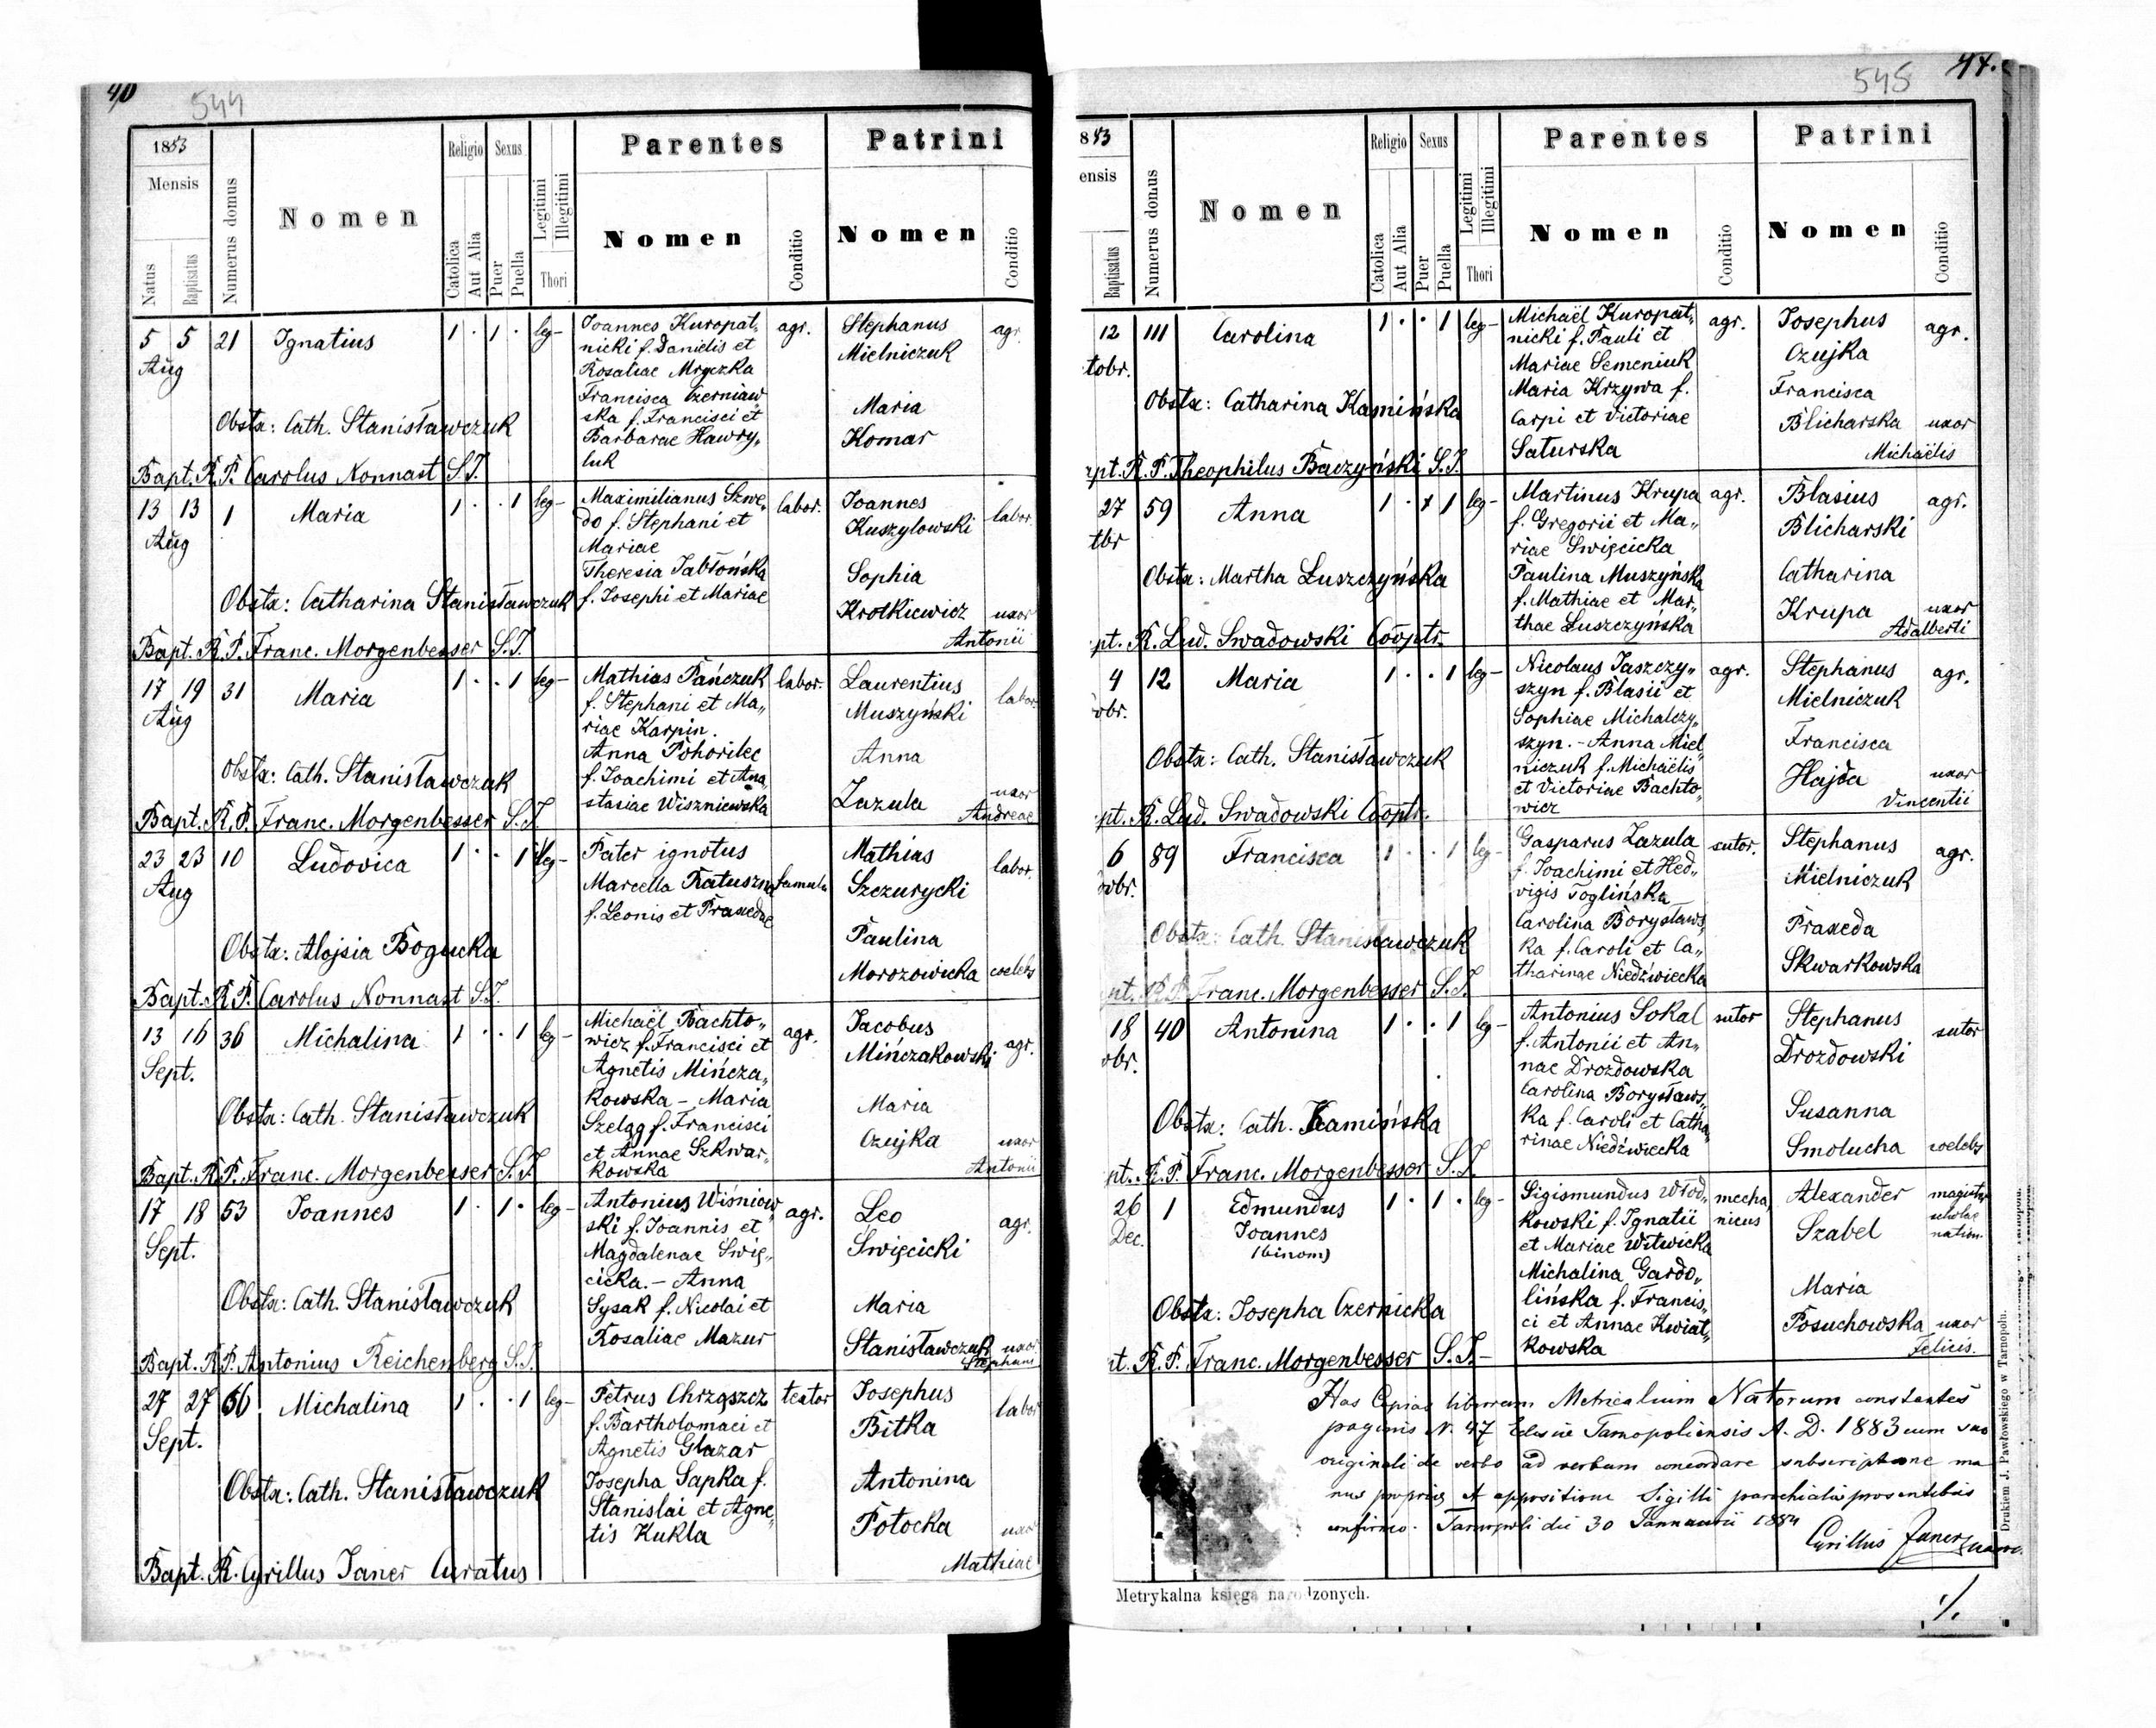 40
544
1853
Mensis
Natus
Baptisatus
Numerus domus
Nomen
Religio
Catolica
Aut Alia
Sexus
Puer
Puella
Legitimi
Illegitimi
Thori
Parentes
Nomen
Conditio
Patrini
Nomen
Conditio
5 5 21 Ignatius 1 · 1 · leg-
Aug
Joannes Kuropat„
nicki f. Danielis et
Rosaliae Mryczka
Francisca Czerniaw„
ska f. Francisci et
Barbarae Hawry„
luk
agr.
Stephanus
Mielniczuk
agr.
Maria
Komar
Obstx: Cath. Stanisławczuk
Bapt. R.P. Carolus Nonnast S.J.
13 13 1 Maria 1 · · 1 leg-
Aug
Maximilianus Szwe„
do f. Stephani et
Mariae
Theresia Jabłońska
f. Josephi et Mariae
labor.
Joannes
Kuszylowski
labor.
Sophia
Krotkiewicz uxor
Antonii
Obstx: Catharina Stanisławczuk
Bapt. R.P. Franc. Morgenbesser S.J.
17 19 31 Maria 1 · · 1 leg-
Aug
Mathias Pańczuk
f. Stephani et Ma„
riae Karpin.
Anna Pohorilec
f. Joachimi et Ana„
stasiae Wiszniewska
labor.
Laurentius
Muszyński
labor.
Anna
Zazula
uxor
Andreae
Obstx: Cath. Stanisławczuk
Bapt. R.P. Franc. Morgenbesser S.J.
23 23 10 Ludovica 1 · · 1 illeg-
Aug
Pater ignotus
Marcella Ratuszna
f. Leonis et Praxedae
famula
Mathias
Szczurycki
labor.
Paulina
Morozowicka coelebs
Obstx: Alojsia Bogucka
Bapt. R.P. Carolus Nonnast S.J.
13 16 36 Michalina 1 · · 1 leg-
Sept.
Michaël Bachto„
wicz f. Francisci et
Agnetis Mińcza„
kowska - Maria
Szeląg f. Francisci
et Annae Szkwar„
kowska
agr.
Jacobus
Mińczakowski
agr.
Maria
Czujka uxor
Antonii
Obstx: Cath. Stanisławczuk
Bapt. R.P. Franc. Morgenbesser S.J.
17 18 53 Joannes 1 · 1 · leg-
Sept.
Antonius Wiśniow„
ski f. Joannis et
Magdalenae Świę„
cicka. - Anna
Sysak f. Nicolai et
Rosaliae Mazur
agr.
Leo
Swięcicki
agr.
Maria
Stanisławczuk uxor
Stephani
Obstx: Cath. Stanisławczuk
Bapt. R.P. Antonius Reichenberg S.J.
27 27 66 Michalina 1 · · 1 leg-
Sept.
Petrus Chrząszcz
f. Bartholomaei et
Agnetis Glazar
Josepha Sapka f.
Stanislai et Agne„
tis Kukla
textor
Josephus
Bitka
labor
Antonina
Potocka uxor
Mathiae
Obstx: Cath. Stanisławczuk
Bapt. R. Cyrillus Janer Curatus
545
853
ensis
Baptisatus
Numerus domus
Nomen
Religio
Catolica
Aut Alia
Sexus
Puer
Puella
Legitimi
Illegitimi
Thori
Parentes
Nomen
Conditio
Patrini
Nomen
Conditio
12 111 Carolina 1 · · 1 leg-
tobr.
Michaël Kuropat„
nicki f. Pauli et
Mariae Semeniuk
Maria Krzywa f.
Carpi et Victoriae
Saturska
agr.
Josephus
Czujka
agr.
Francisca
Blicharska uxor
Michaëlis
Obstx: Catharina Kamińska
apt. R.P. Theophilus Baczyński S.J.
27 59 Anna 1 · · 1 leg-
tbr
Martinus Krupa
f. Gregorii et Ma„
riae Swięcicka
Paulina Muszyńska
f. Mathiae et Mar„
thae Łuszczyńska
agr.
Blasius
Blicharski
agr.
Catharina
Krupa uxor
Adalberti
Obstx: Martha Łuszczyńska
pt. R. Lud. Swadowski Cooptr.
4 12 Maria 1 · · 1 leg-
obr.
Nicolaus Jaszczy„
szyn f. Blasii et
Sophiae Michalczy„
szyn. - Anna Miel„
niczuk f. Michaëlis
et Victoriae Bachto„
wicz
agr.
Stephanus
Mielniczuk
agr.
Francisca
Hajda uxor
Vincentii
Obstx: Cath. Stanisławczuk
pt. R. Lud. Swadowski Cooptr.
6 89 Francisca 1 · · 1 leg-
obr.
Gasparus Zazula
f. Joachimi et Hed„
vigis Toglińska
Carolina Borysławs„
ka f. Caroli et Ca„
tharinae Niedźwiecka
sutor.
Stephanus
Mielniczuk
agr.
Praxeda
Skwarkowska
Obstx: Cath. Stanisławczuk
pt. R.P. Franc. Morgenbesser S.J.
18 40 Antonina 1 · · 1 leg-
obr.
Antonius Sokal
f. Antonii et An„
nae Drozdowska
Carolina Borysławs„
ka f. Caroli et Catha„
rinae Niedźwiecka
sutor
Stephanus
Drozdowski
sutor
Susanna
Smolucha coelebs
Obstx: Cath. Kamińska
pt. R.P. Franc. Morgenbesser S.J.
26 1 Edmundus 1 · 1 · leg-
Dec. Joannes
(binom)
Sigismundus Włod„
kowski f. Ignatii
et Mariae Witwicka
Michalina Gardo„
lińska f. Francis„
ci et Annae Kwiat„
kowska
mecha„
nicus
Alexander
Szabel
magister
scholae
Maria
Posuchowska uxor
Felicis.
Obstx: Josepha Czernicka
t. R.P. Franc. Morgenbesser S.J.-
Has Copias librorum Metricalium Natorum constantes
paginis N. 47 Eclesiae Tarnopoliensis A. D. 1883 cum suo
originali de verbo ad verbum concordare subscriptione ma
nus propriae et appositione Sigilli parochialis presentibus
confirmo. Tarnopoli die 30 Januarii 1884
Cyrillus Janer
Metrykalna księga narodzonych.
Drukiem J. Pawłowskiego w Tarnopolu.